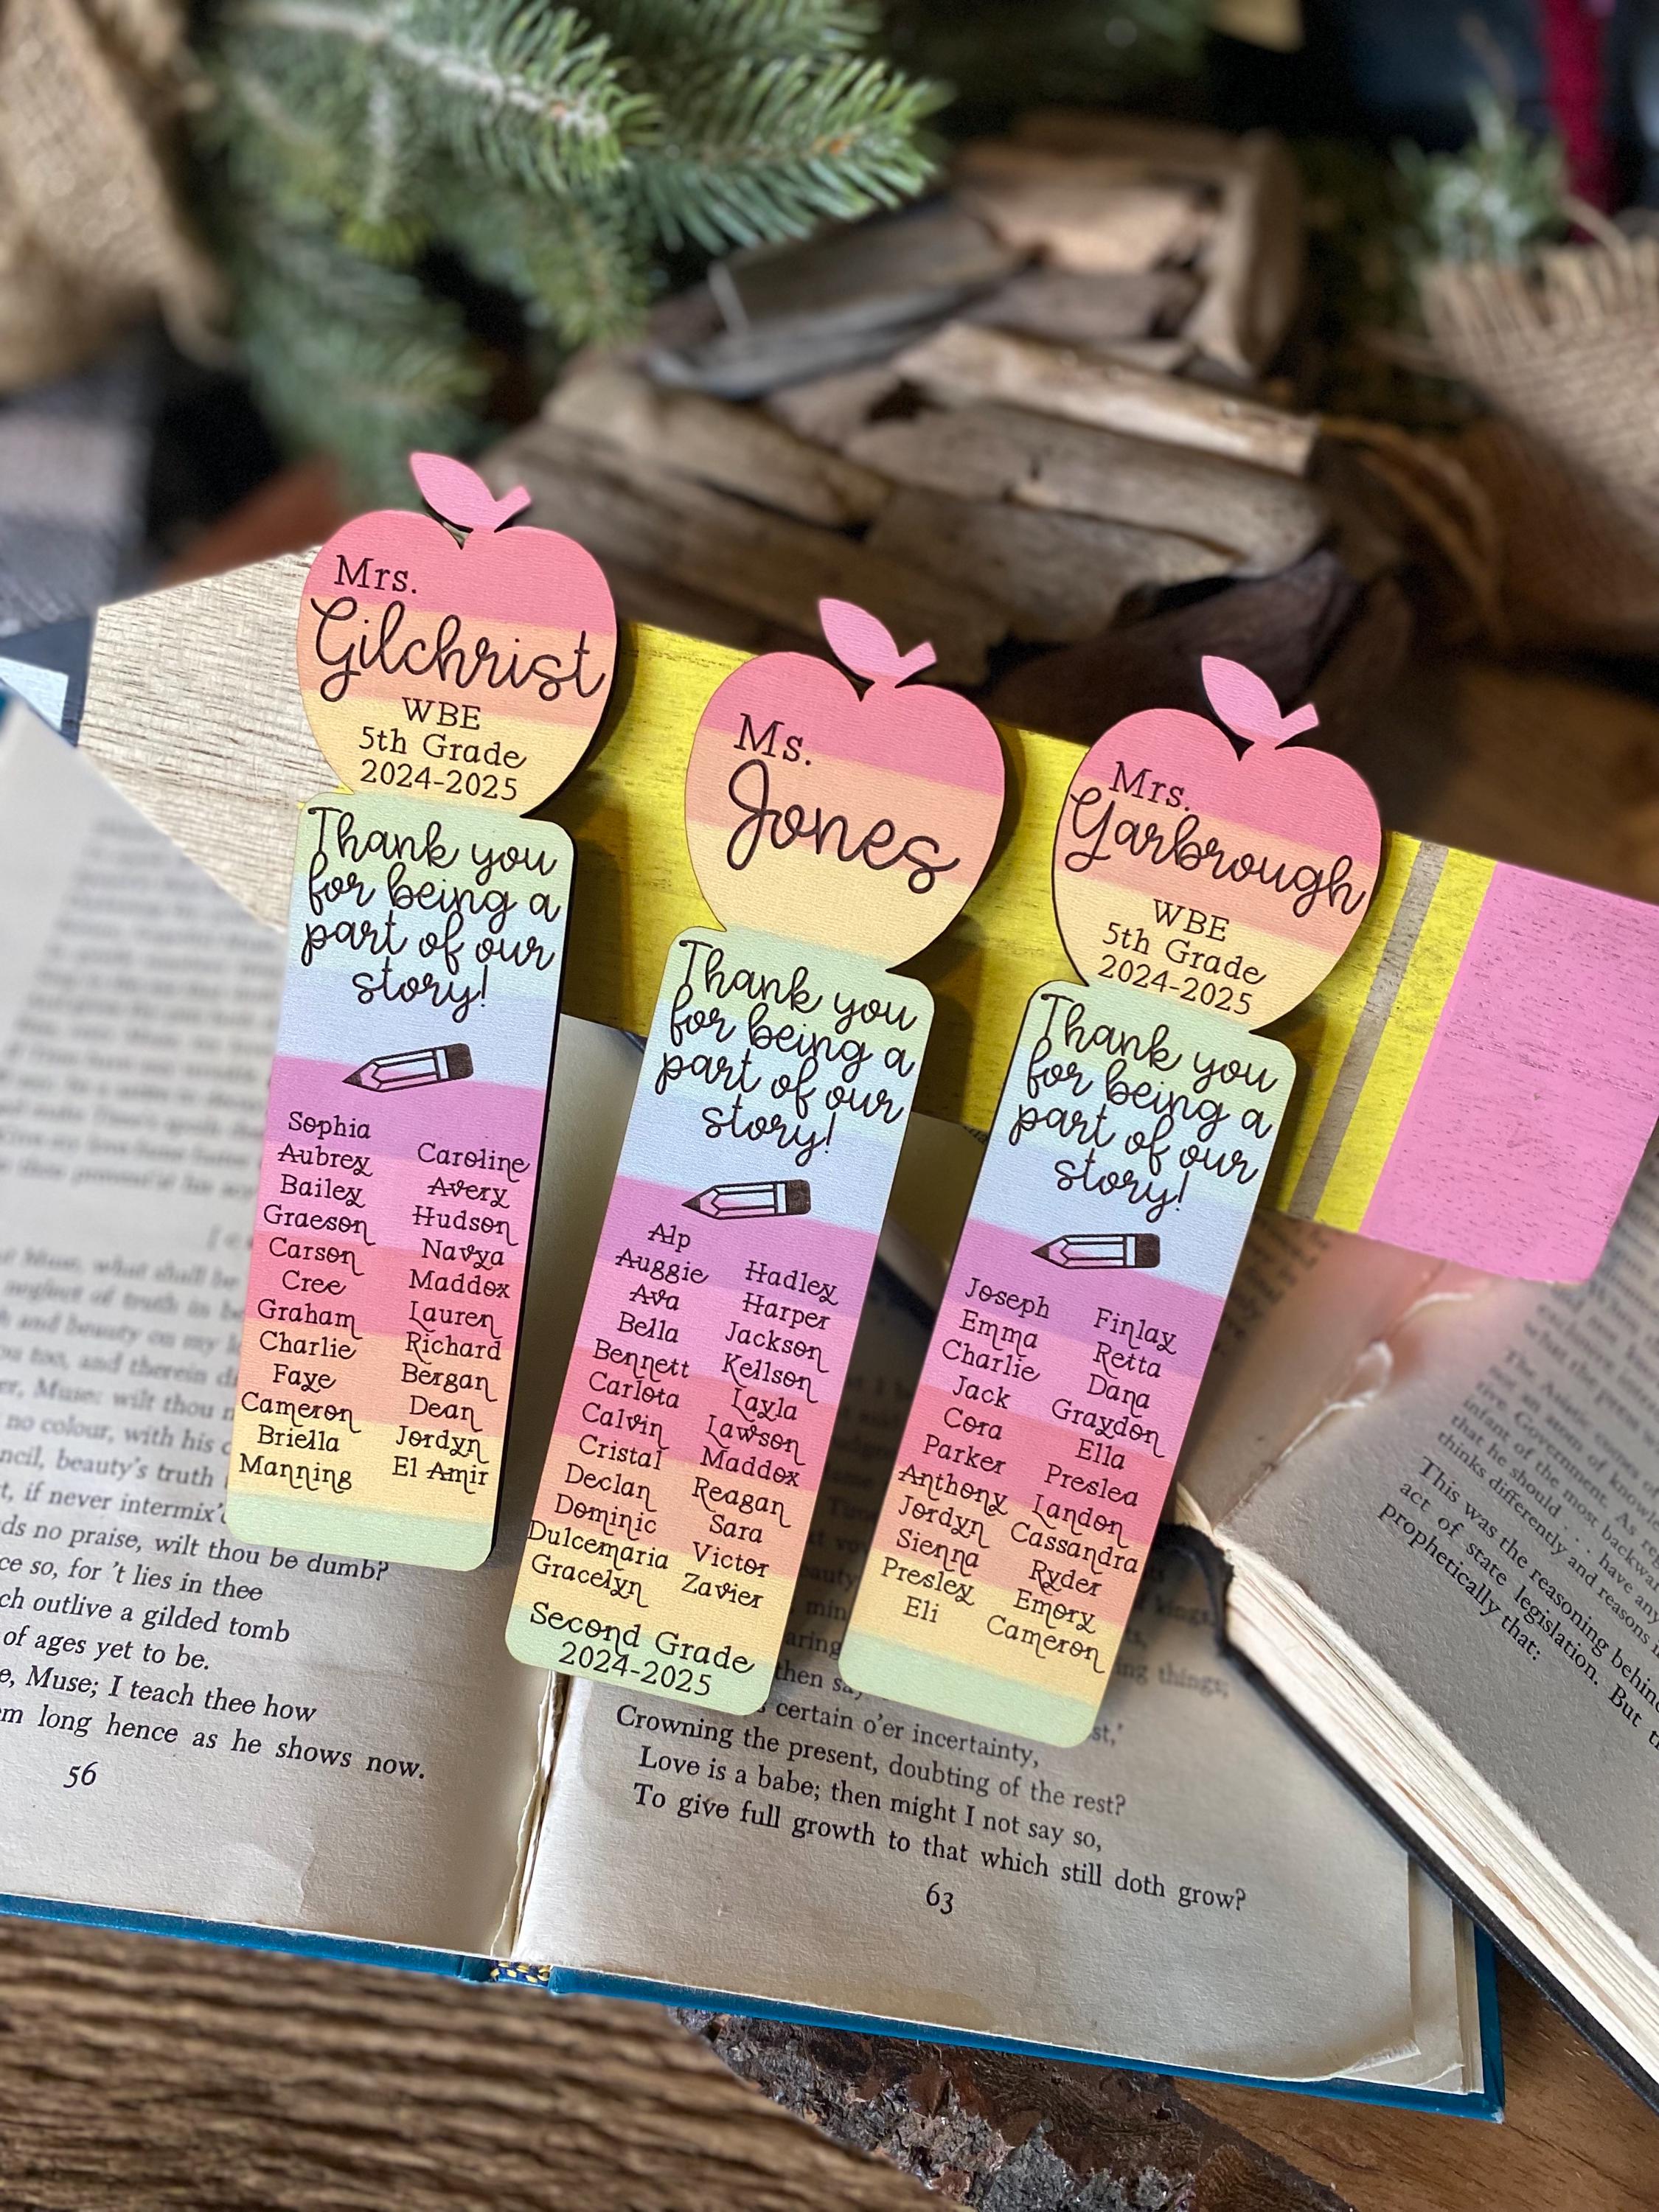 Mrs.
Gilchrist
WBE
5th Grade
2024-2025
Thank you
for being a
part of our
story!
Sophia
Aubrey
Bailey
Graeson
Carson
Cree
Graham
Charlie
Faye
Cameron
Briella
Manning
Caroline
Avery
Hudson
Navya
Maddox
Lauren
Richard
Bergan
Dean
Jordyn
El Amir
Ms.
Jones
Thank you
for being a
part of our
story!
Alp
Auggie
Ava
Bella
Bennett
Carlota
Calvin
Cristal
Declan
Dominic
Dulcemaria
Gracelyn
Hadley
Harper
Jackson
Kellson
Layla
Lawson
Maddox
Reagan
Sara
Victor
Zavier
Second Grade
2024-2025
Mrs.
Yarbrough
WBE
5th Grade
2024-2025
Thank you
for being a
part of our
story!
Joseph
Emma
Charlie
Jack
Cora
Parker
Anthony
Jordyn
Sienna
Presley
Eli
Finlay
Retta
Dana
Graydon
Ella
Preslea
Landon
Cassandra
Ryder
Emory
Cameron
no colour, with his
beauty's truth
, if never intermix'd
no praise, wilt thou be dumb?
so, for 't lies in thee
outlive a gilded tomb
of ages yet to be.
, Muse; I teach thee how
long hence as he shows now.
56
certain o'er incertainty,
Crowning the present, doubting of the rest?
Love is a babe; then might I not say so,
To give full growth to that which still doth grow?
63
This was the reasoning behind
act of state legislation. But
prophetically that: